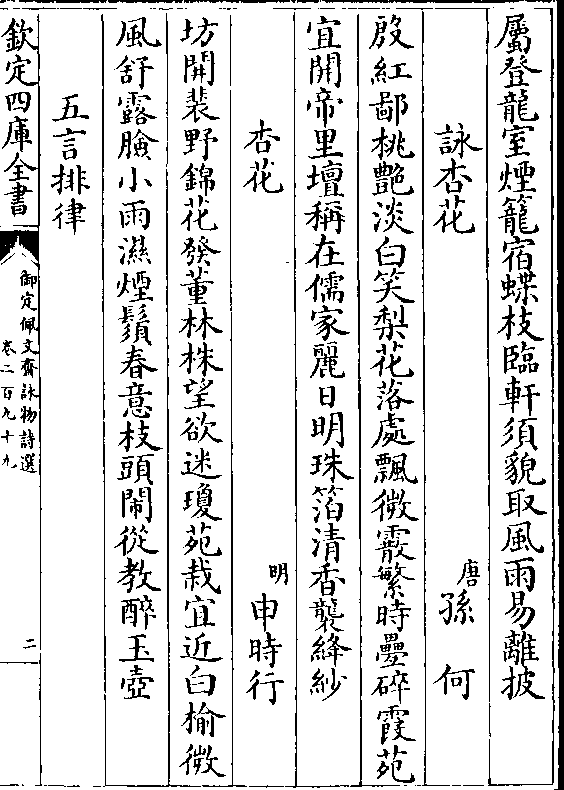 屬登龍室煙籠宿蝶枝臨軒須貌取風雨易離披
詠杏花 唐 孫何
殷紅鄙桃艷淡白笑梨花落處飄微霰繁時疊碎霞苑
宜開帝里壇稱在儒家麗日明珠箔清香襲絳紗
杏花 明 申時行
坊開裴野錦花發董林株望欲迷瓊苑栽宜近白榆微
風舒露臉小雨濕煙鬚春意枝頭鬧從教醉玉壺
五言排律
欽定四庫全書 御定佩文齋詠物詩選 卷二百九十九 二